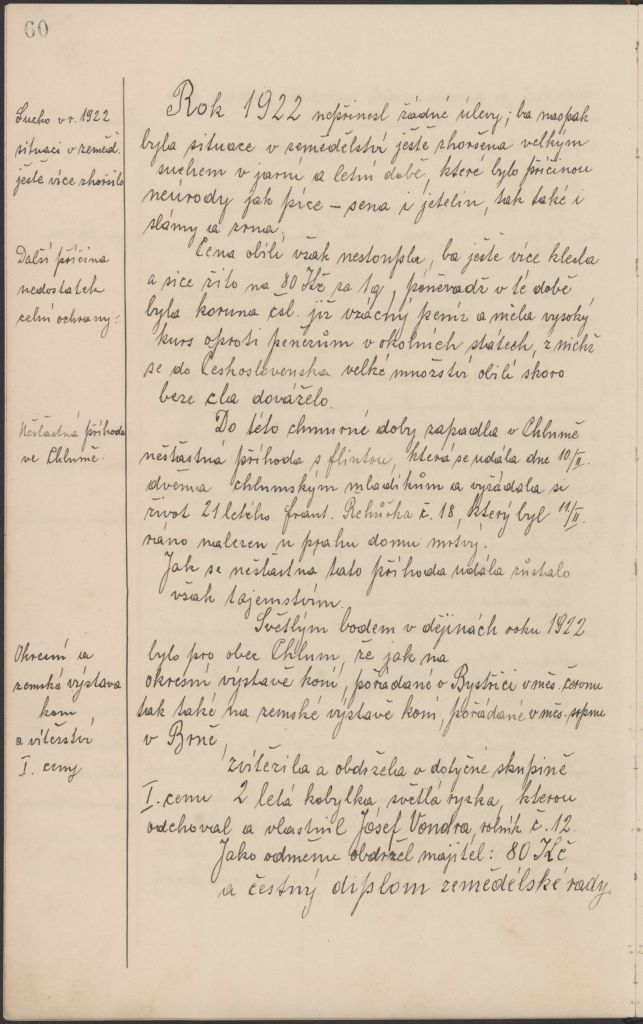 60
Sucho v r. 1922
situaci v zeměd.
ještě více zhoršilo
Rok 1922 nepřinesl žádné úlevy; ba naopak
byla situace v zemědělství ještě zhoršena velkým
suchem v jarní a letní době, které bylo příčinou
neúrody jak píce – sena i jetelin, tak také i
slámy a zrna.
Další příčina
nedostatek
celní ochrany:
Cena obilí však nestoupla, ba ještě více klesla
a sice žito na 80 Kč za 1 q, poněvadž v té době
byla koruna čsl. již vzácný peníz a měla vysoký
kurs oproti penězům v okolních státech, z nichž
se do Československa velké množství obilí skoro
beze cla dováželo.
Nešťastná příhoda
ve Chlumě.
Do této chmurné doby zapadla v Chlumě
nešťastná příhoda s flintou, která se udála dne 10/II.
dvěma chlumským mladíkům a vyžádala si
život 21 letého Frant. Řehůřka č. 18, který byl 11/II.
ráno nalezen u prahu domu mrtvý.
Jak se nešťastná tato příhoda udála zůstalo
však tajemstvím.
Okresní a
zemská výstava
koní
a vítězství
I. ceny
Světlým bodem v dějinách roku 1922
bylo pro obec Chlum, že jak na
okresní výstavě koní, pořádané v Bystřici v měs. červnu
tak také na zemské výstavě koní, pořádané v měs. srpnu
v Brně,
zvítězila a obdržela v dotyčné skupině
I. cenu 2 letá kobylka, světlá ryzka, kterou
odchoval a vlastnil Josef Vondra, rolník č. 12.
Jako odměnu obdržel majitel: 80 Kč
a čestný diplom zemědělské rady.